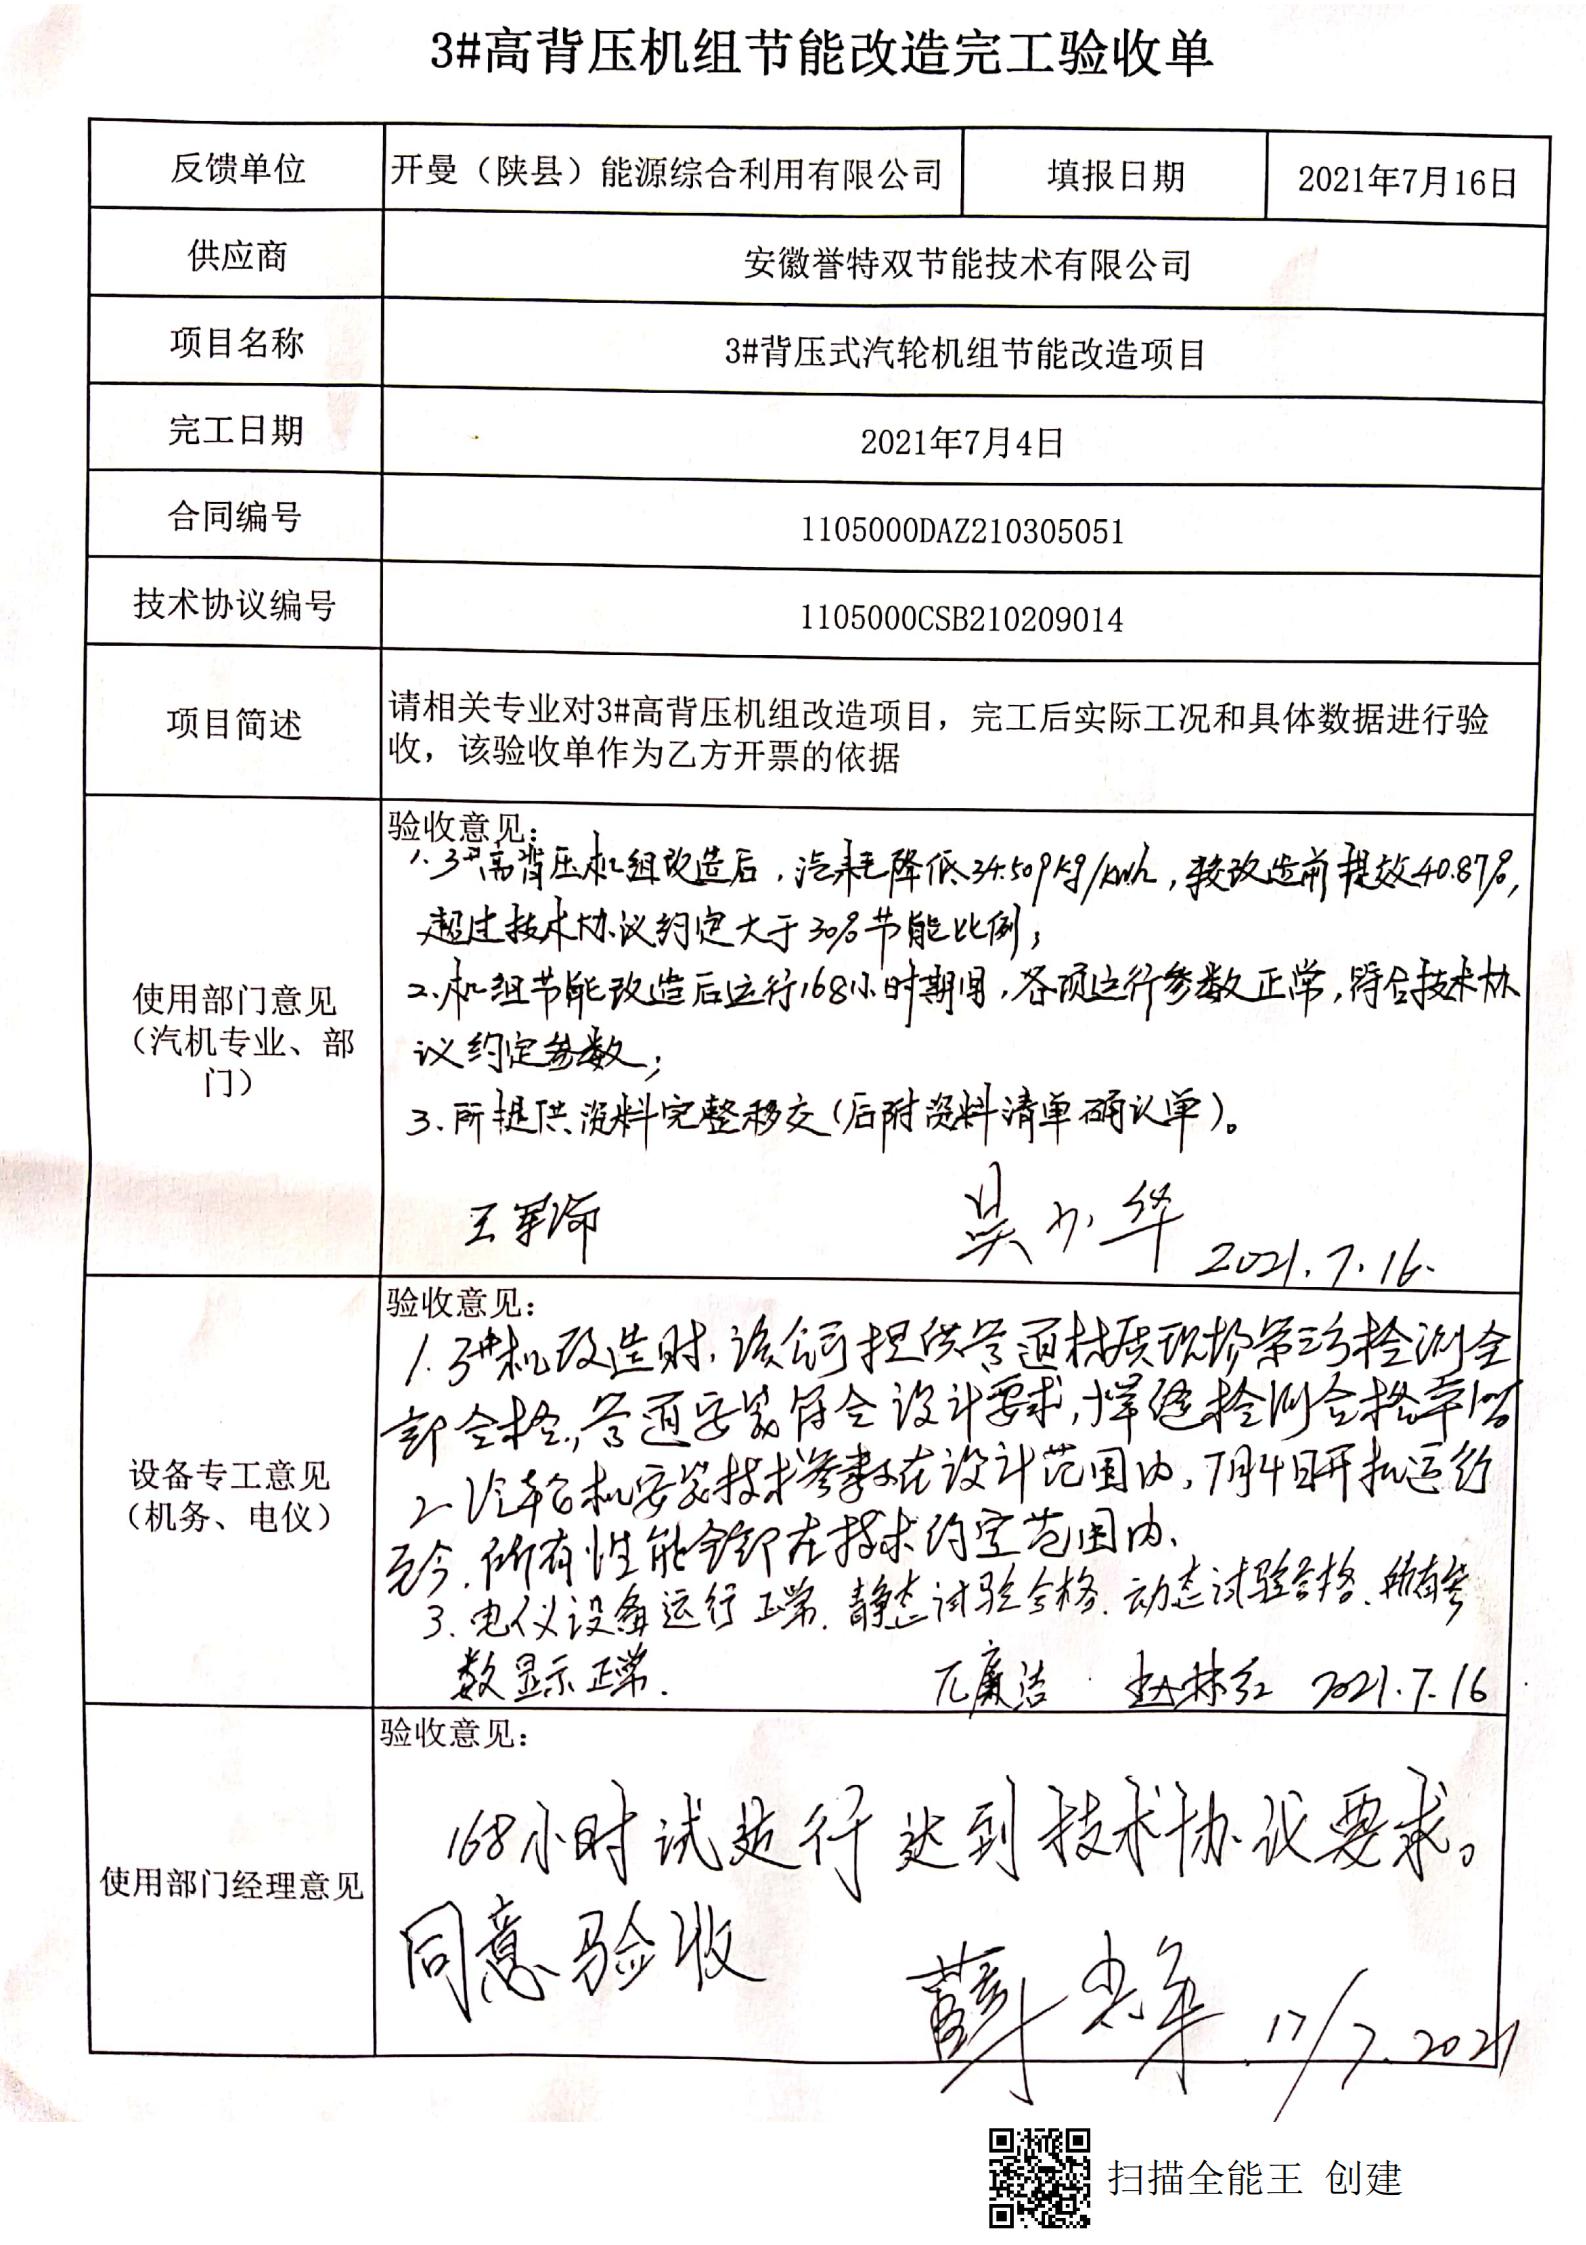 3#高背压机组节能改造完工验收单
反馈单位 开曼（陕县）能源综合利用有限公司 填报日期 2021年7月16日
供应商 安徽誉特双节能技术有限公司
项目名称 3#背压式汽轮机组节能改造项目
完工日期 2021年7月4日
合同编号 1105000DAZ210305051
技术协议编号 1105000CSB210209014
项目简述
请相关专业对3#高背压机组改造项目，完工后实际工况和具体数据进行验
收，该验收单作为乙方开票的依据
使用部门意见
（汽机专业、部
门）
验收意见：
1.3#高背压机组改造后，汽耗降低34.509kg/kwh，较改造前提效40.87%，
超过技术协议约定大于30%节能比例；
2.机组节能改造后运行168小时期间，各项运行参数正常，符合技术协
议约定参数；
3.所提供资料完整移交（后附资料清单确认单）。
王军 吴少华 2021.7.16.
设备专工意见
（机务、电仪）
验收意见：
1.3#机改造时，该公司提供管道材质现场第三方检测全
部合格，管道安装符合设计要求，焊缝检测合格率100%
2.汽轮机安装技术参数在设计范围内，7月4日开机运行
至今，所有性能全部在技术约定范围内、
3.电仪设备运行正常.静态试验合格.动态试验合格.所有参
数显示正常.
廉洁 赵林红 2021.7.16
使用部门经理意见
验收意见：
168小时试运行达到技术协议要求。
同意验收
薛 17/7.2021
扫描全能王 创建